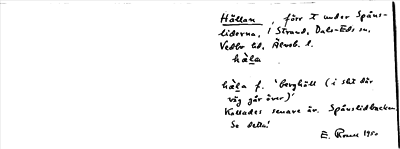 Hällan, förr t under Späns-
liderna, i Strand, Dals-Eds sn,
Vedbo hd, Älvsb. l.
hàla
hàla f. 'berghäll (i slt där
väg går över)'
Kallades senare är. Spänslidbacken.
Se detta!
E. 1950